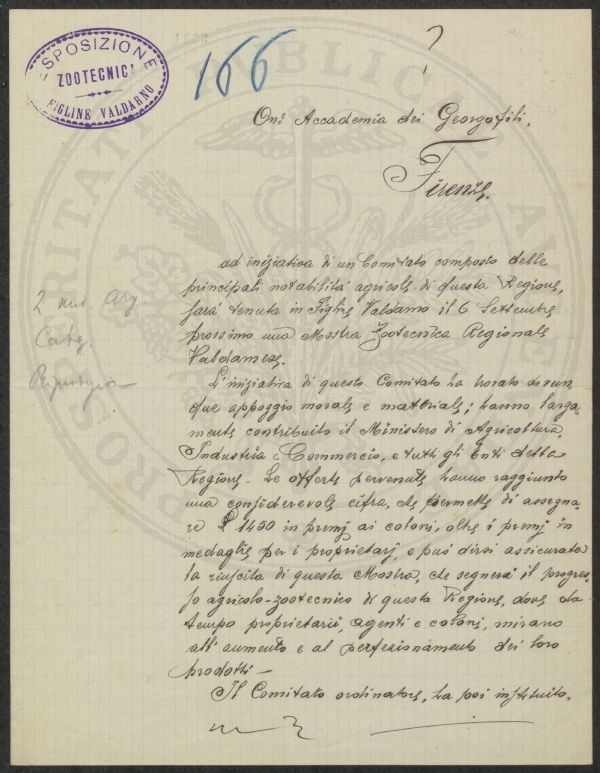 ESPOSIZIONE
ZOOTECNICA
FIGLINE VALDARNO
166
?
On.e Accademia dei Georgofili,
Firenze.
ad iniziativa di un Comitato composto delle
principali notabilità agricole di questa Regione,
sarà tenuta in Figline Valdarno il 6 Settembre
prossimo una Mostra Zootecnica Regionale
Valdarnese.
L'iniziativa di questo Comitato ha trovato dovun
que appoggio morale e materiale; hanno larga-
mente contribuito il Ministero di Agricoltura,
Industria e Commercio, e tutti gli Enti della
Regione. Le offerte pervenute hanno raggiunto
una considerevole cifra, che permette di assegna
re £ 1450 in premj ai coloni, oltre i premj in
medaglie per i proprietarj, e può dirsi assicurata
la riuscita di questa Mostra, che segnerà il progres
so agricolo-zootecnico di questa Regione, dove da
tempo proprietarii, agenti e coloni, mirano
all'aumento e al perfezionamento dei loro
prodotti —
Il Comitato ordinatore, ha poi instituito
2 med. Arg